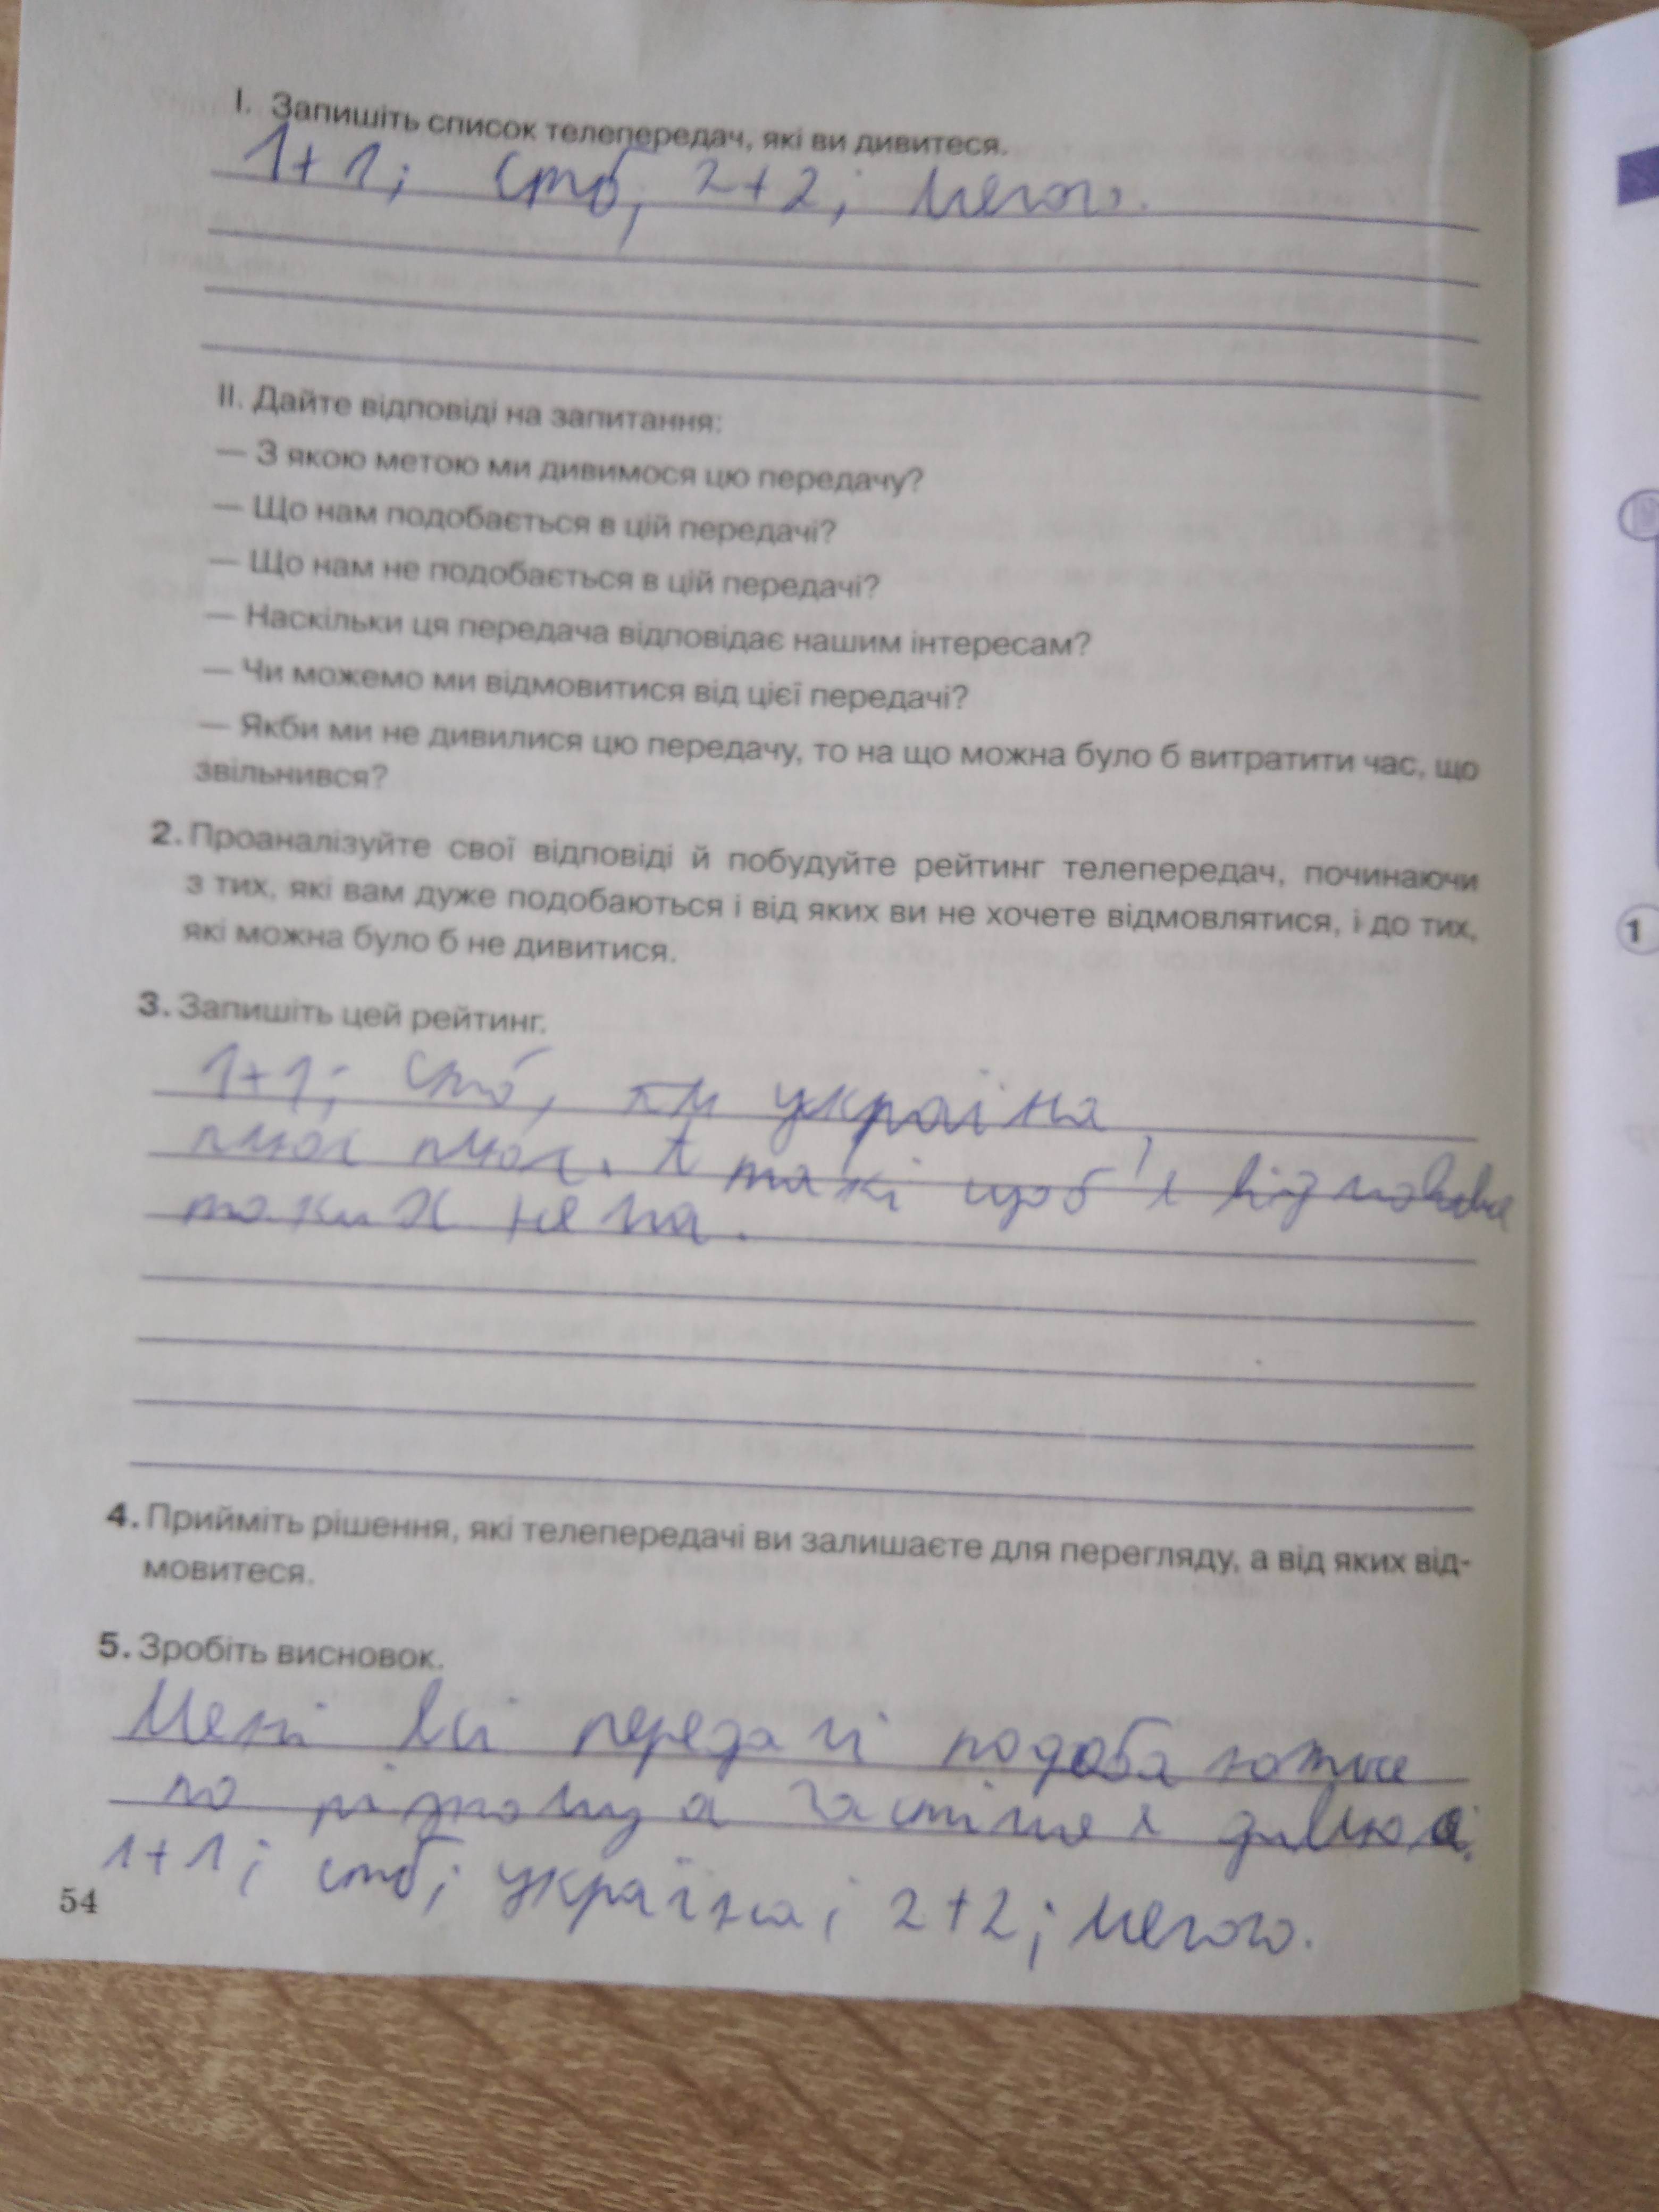 I. Запишіть список телепередач, які ви дивитеся.
1+1; Стб, 2+2; Мегого.
II. Дайте відповіді на запитання:
— З якою метою ми дивимося цю передачу?
— Що нам подобається в цій передачі?
— Що нам не подобається в цій передачі?
— Наскільки ця передача відповідає нашим інтересам?
— Чи можемо ми відмовитися від цієї передачі?
— Якби ми не дивилися цю передачу, то на що можна було б витратити час, що
звільнився?
2. Проаналізуйте свої відповіді й побудуйте рейтинг телепередач, починаючи
з тих, які вам дуже подобаються і від яких ви не хочете відмовлятися, і до тих,
які можна було б не дивитися.
3. Запишіть цей рейтинг.
1+1; Стб, україна,
плюс плюс. А такі щоб я
таких нема.
4. Прийміть рішення, які телепередачі ви залишаєте для перегляду, а від яких від-
мовитеся.
5. Зробіть висновок.
Мені всі передачі подобаються
по різному а частіше я дивлюсь
1+1; стб; україна; 2+2; Мегого.
54
1